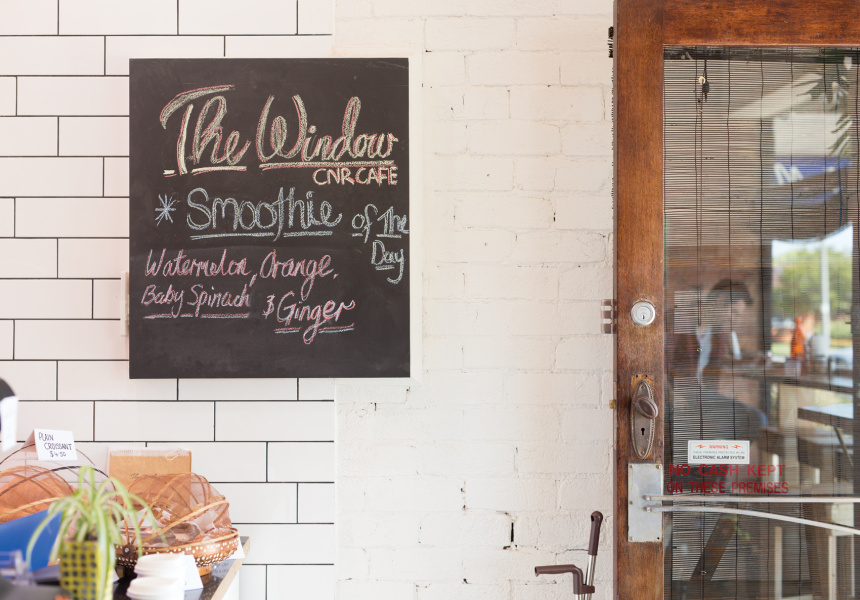 The Window
CNR CAFE
* Smoothie of The
Day
Watermelon, Orange,
Baby Spinach & Ginger
PLAIN
CROISSANT
$4.50
WARNING
ELECTRONIC ALARM SYSTEM
NO CASH KEPT
ON THESE PREMISES